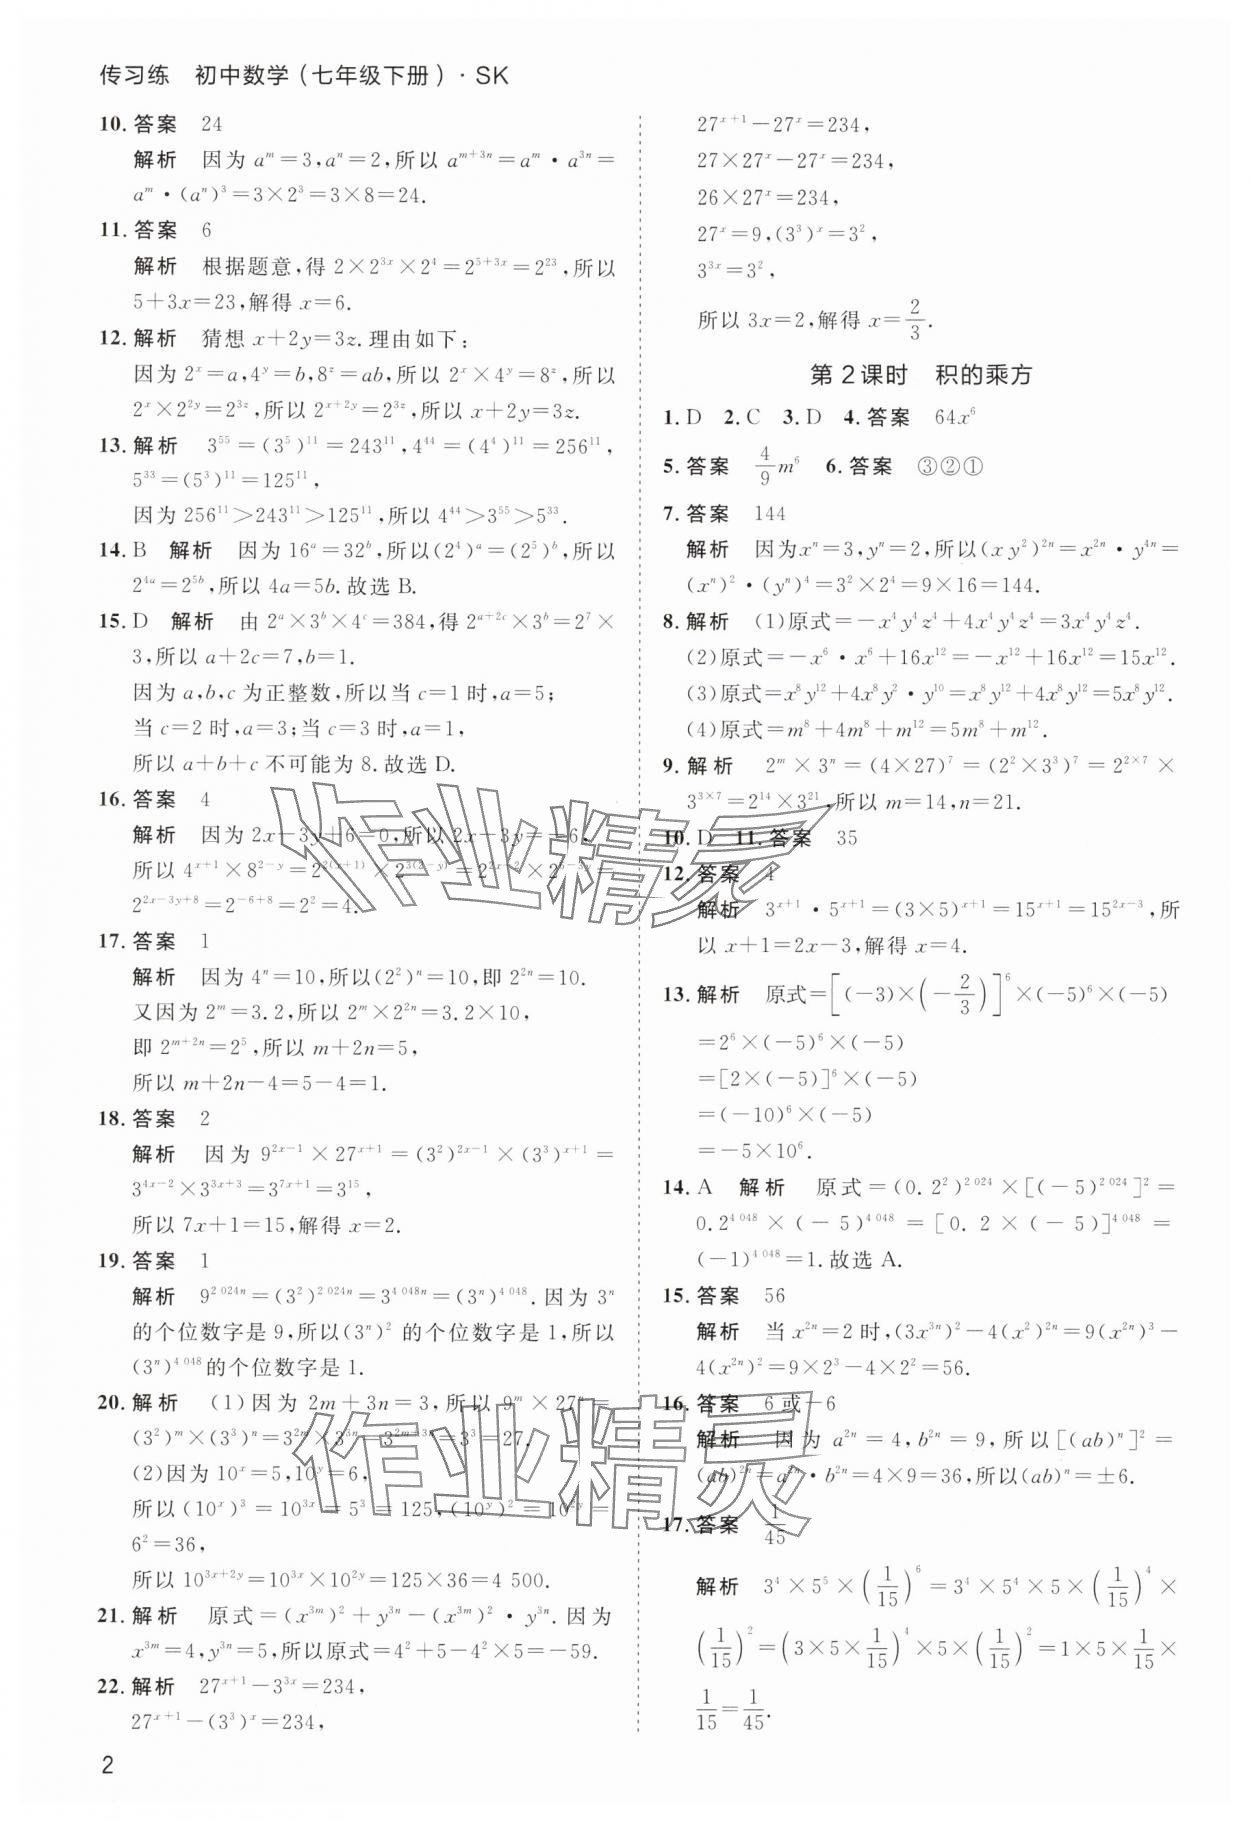 传习练　初中数学(七年级下册)·SK
10. 答案　24
解析　因为 a^m=3,a^n=2,所以 a^{m+3n}=a^m·a^{3n}=
a^m·(a^n)^3=3×2^3=3×8=24.
11. 答案　6
解析　根据题意,得 2×2^{3x}×2^4=2^{5+3x}=2^{23},所以
5+3x=23,解得 x=6.
12. 解析　猜想 x+2y=3z.理由如下:
因为 2^x=a,4^y=b,8^z=ab,所以 2^x×4^y=8^z,所以
2^x×2^{2y}=2^{3z},所以 2^{x+2y}=2^{3z},所以 x+2y=3z.
13. 解析　3^{55}=(3^5)^{11}=243^{11},4^{44}=(4^4)^{11}=256^{11},
5^{33}=(5^3)^{11}=125^{11},
因为 256^{11}>243^{11}>125^{11},所以 4^{44}>3^{55}>5^{33}.
14. B　解析　因为 16^a=32^b,所以(2^4)^a=(2^5)^b,所以
2^{4a}=2^{5b},所以 4a=5b.故选 B.
15. D　解析　由 2^a×3^b×4^c=384,得 2^{a+2c}×3^b=2^7×
3,所以 a+2c=7,b=1.
因为 a,b,c 为正整数,所以当 c=1 时,a=5;
当 c=2 时,a=3;当 c=3 时,a=1,
所以 a+b+c 不可能为 8.故选 D.
16. 答案　4
解析　因为 2x-3y+6=0,所以 2x-3y=-6,
所以 4^{x+1}×8^{2-y}=2^{2(x+1)}×2^{3(2-y)}=2^{2x+2}×2^{6-3y}=
2^{2x-3y+8}=2^{-6+8}=2^2=4.
17. 答案　1
解析　因为 4^n=10,所以(2^2)^n=10,即 2^{2n}=10.
又因为 2^m=3.2,所以 2^m×2^{2n}=3.2×10,
即 2^{m+2n}=2^5,所以 m+2n=5,
所以 m+2n-4=5-4=1.
18. 答案　2
解析　因为 9^{2x-1}×27^{x+1}=(3^2)^{2x-1}×(3^3)^{x+1}=
3^{4x-2}×3^{3x+3}=3^{7x+1}=3^{15},
所以 7x+1=15,解得 x=2.
19. 答案　1
解析　9^{2 024n}=(3^2)^{2 024n}=3^{4 048n}=(3^n)^{4 048}.因为 3^n
的个位数字是 9,所以(3^n)^2 的个位数字是 1,所以
(3^n)^{4 048}的个位数字是 1.
20. 解析　(1)因为 2m+3n=3,所以 9^m×27^n=
(3^2)^m×(3^3)^n=3^{2m}×3^{3n}=3^{2m+3n}=3^3=27.
(2)因为 10^x=5,10^y=6,
所以(10^x)^3=10^{3x}=5^3=125,(10^y)^2=10^{2y}=
6^2=36,
所以 10^{3x+2y}=10^{3x}×10^{2y}=125×36=4 500.
21. 解析　原式=(x^{3m})^2+y^{3n}-(x^{3m})^2·y^{3n}.因为
x^{3m}=4,y^{3n}=5,所以原式=4^2+5-4^2×5=-59.
22. 解析　27^{x+1}-3^{3x}=234,
27^{x+1}-(3^3)^x=234,
27^{x+1}-27^x=234,
27×27^x-27^x=234,
26×27^x=234,
27^x=9,(3^3)^x=3^2,
3^{3x}=3^2,
所以 3x=2,解得 x=2/3.
第 2 课时　积的乘方
1. D　2. C　3. D　4. 答案　64x^6
5. 答案　4/9 m^6　6. 答案　③②①
7. 答案　144
解析　因为x^n=3,y^n=2,所以(xy^2)^{2n}=x^{2n}·y^{4n}=
(x^n)^2·(y^n)^4=3^2×2^4=9×16=144.
8. 解析　(1)原式=-x^4y^4z^4+4x^4y^4z^4=3x^4y^4z^4.
(2)原式=-x^6·x^6+16x^{12}=-x^{12}+16x^{12}=15x^{12}.
(3)原式=x^8y^{12}+4x^8y^2·y^{10}=x^8y^{12}+4x^8y^{12}=5x^8y^{12}.
(4)原式=m^8+4m^8+m^{12}=5m^8+m^{12}.
9. 解析　2^m×3^n=(4×27)^7=(2^2×3^3)^7=2^{2×7}×
3^{3×7}=2^{14}×3^{21},所以 m=14,n=21.
10. D　11. 答案　35
12. 答案　4
解析　3^{x+1}·5^{x+1}=(3×5)^{x+1}=15^{x+1}=15^{2x-3},所
以 x+1=2x-3,解得 x=4.
13. 解析　原式=[(-3)×(-2/3)]^6×(-5)^6×(-5)
=2^6×(-5)^6×(-5)
=[2×(-5)]^6×(-5)
=(-10)^6×(-5)
=-5×10^6.
14. A　解析　原式=(0.2^2)^{2 024}×[(-5)^{2 024}]^2=
0.2^{4 048}×(-5)^{4 048}=[0.2×(-5)]^{4 048}=
(-1)^{4 048}=1.故选 A.
15. 答案　56
解析　当 x^{2n}=2 时,(3x^{3n})^2-4(x^2)^{2n}=9(x^{2n})^3-
4(x^{2n})^2=9×2^3-4×2^2=56.
16. 答案　6 或-6
解析　因为 a^{2n}=4,b^{2n}=9,所以[(ab)^n]^2=
(ab)^{2n}=a^{2n}·b^{2n}=4×9=36,所以(ab)^n=±6.
17. 答案　1/45
解析　3^4×5^5×(1/15)^6=3^4×5^4×5×(1/15)^4×
(1/15)^2=(3×5×1/15)^4×5×(1/15)^2=1×5×1/15×
1/15=1/45.
2
作业精灵
作业精灵